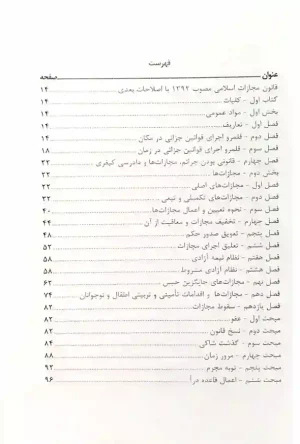 فهرست
عنوان صفحه
قانون مجازات اسلامی مصوب ۱۳۹۲ با اصلاحات بعدی ۱۴
کتاب اول - کلیات ۱۴
بخش اول - مواد عمومی ۱۴
فصل اول - تعاریف ۱۴
فصل دوم - قلمرو اجرای قوانین جزائی در مکان ۱۴
فصل سوم - قلمرو اجرای قوانین جزائی در زمان ۱۸
فصل چهارم - قانونی بودن جرائم، مجازات‌ها و دادرسی کیفری ۲۲
بخش دوم - مجازات‌ها ۲۲
فصل اول - مجازات‌های اصلی ۲۲
فصل دوم - مجازات‌های تکمیلی و تبعی ۳۲
فصل سوم - نحوه تعیین و اعمال مجازات‌ها ۴۰
فصل چهارم - تخفیف مجازات و معافیت از آن ۴۴
فصل پنجم - تعویق صدور حکم ۴۸
فصل ششم - تعلیق اجرای مجازات ۵۲
فصل هفتم - نظام نیمه آزادی ۵۸
فصل هشتم - نظام آزادی مشروط ۵۸
فصل نهم - مجازات‌های جایگزین حبس ۶۲
فصل دهم - مجازات‌ها و اقدامات تأمینی و تربیتی اطفال و نوجوانان ۷۴
فصل یازدهم - سقوط مجازات ۸۲
مبحث اول - عفو ۸۲
مبحث دوم - نسخ قانون ۸۲
مبحث سوم - گذشت شاکی ۸۴
مبحث چهارم - مرور زمان ۸۸
مبحث پنجم - توبه مجرم ۹۲
مبحث ششم - اعمال قاعده درأ ۹۶